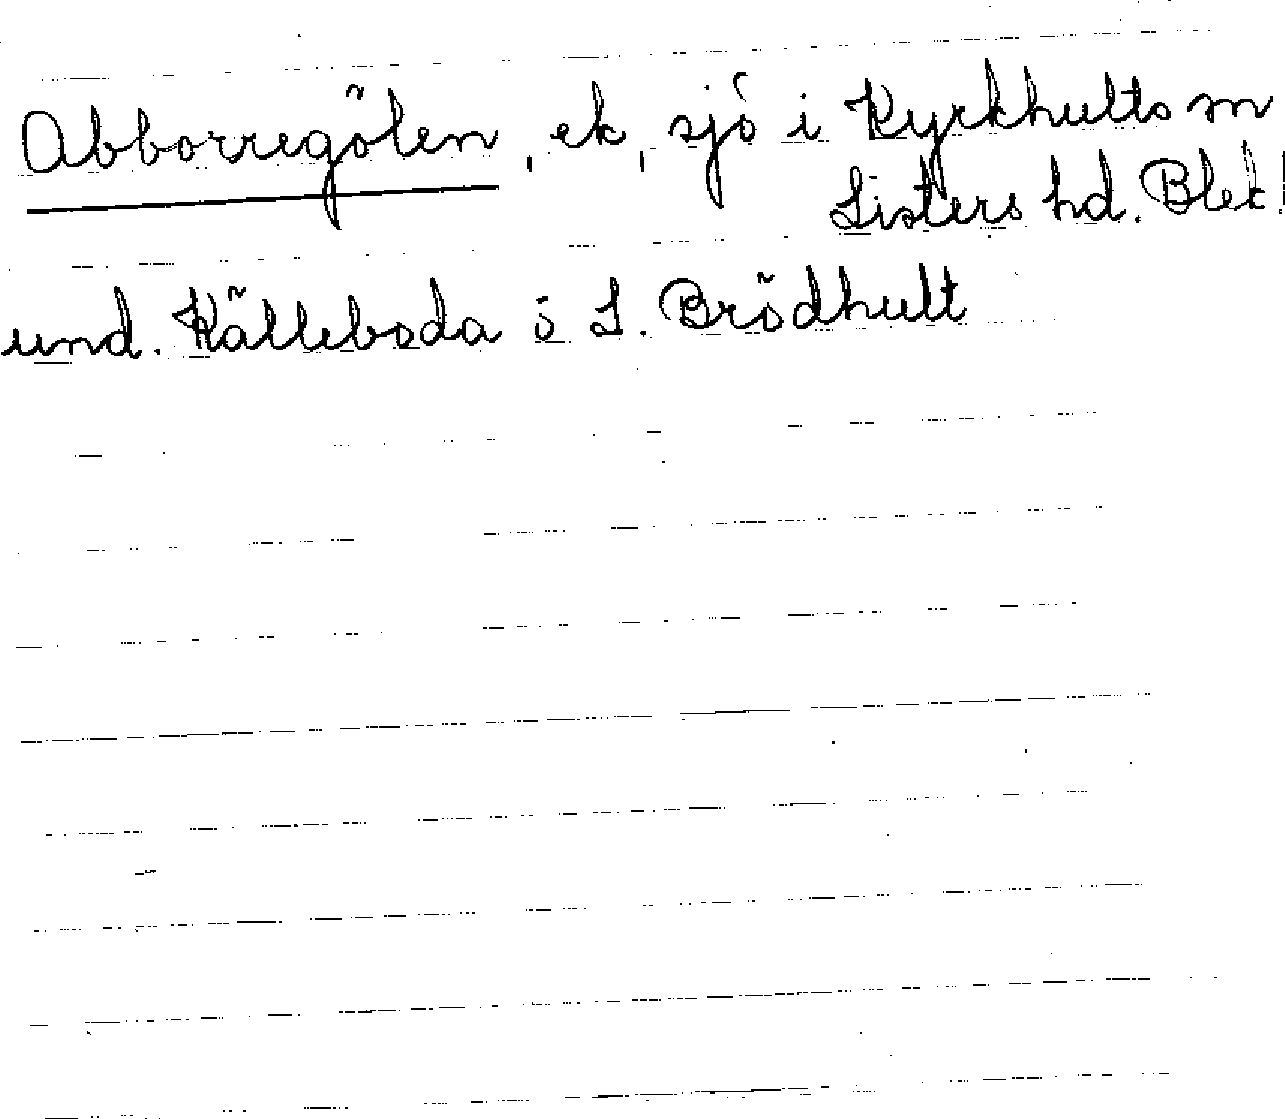 Abborregölen, ek, sjö i Kyrkhults sn
Listers hd. Blek
und. Källeboda ö S. Brödhult